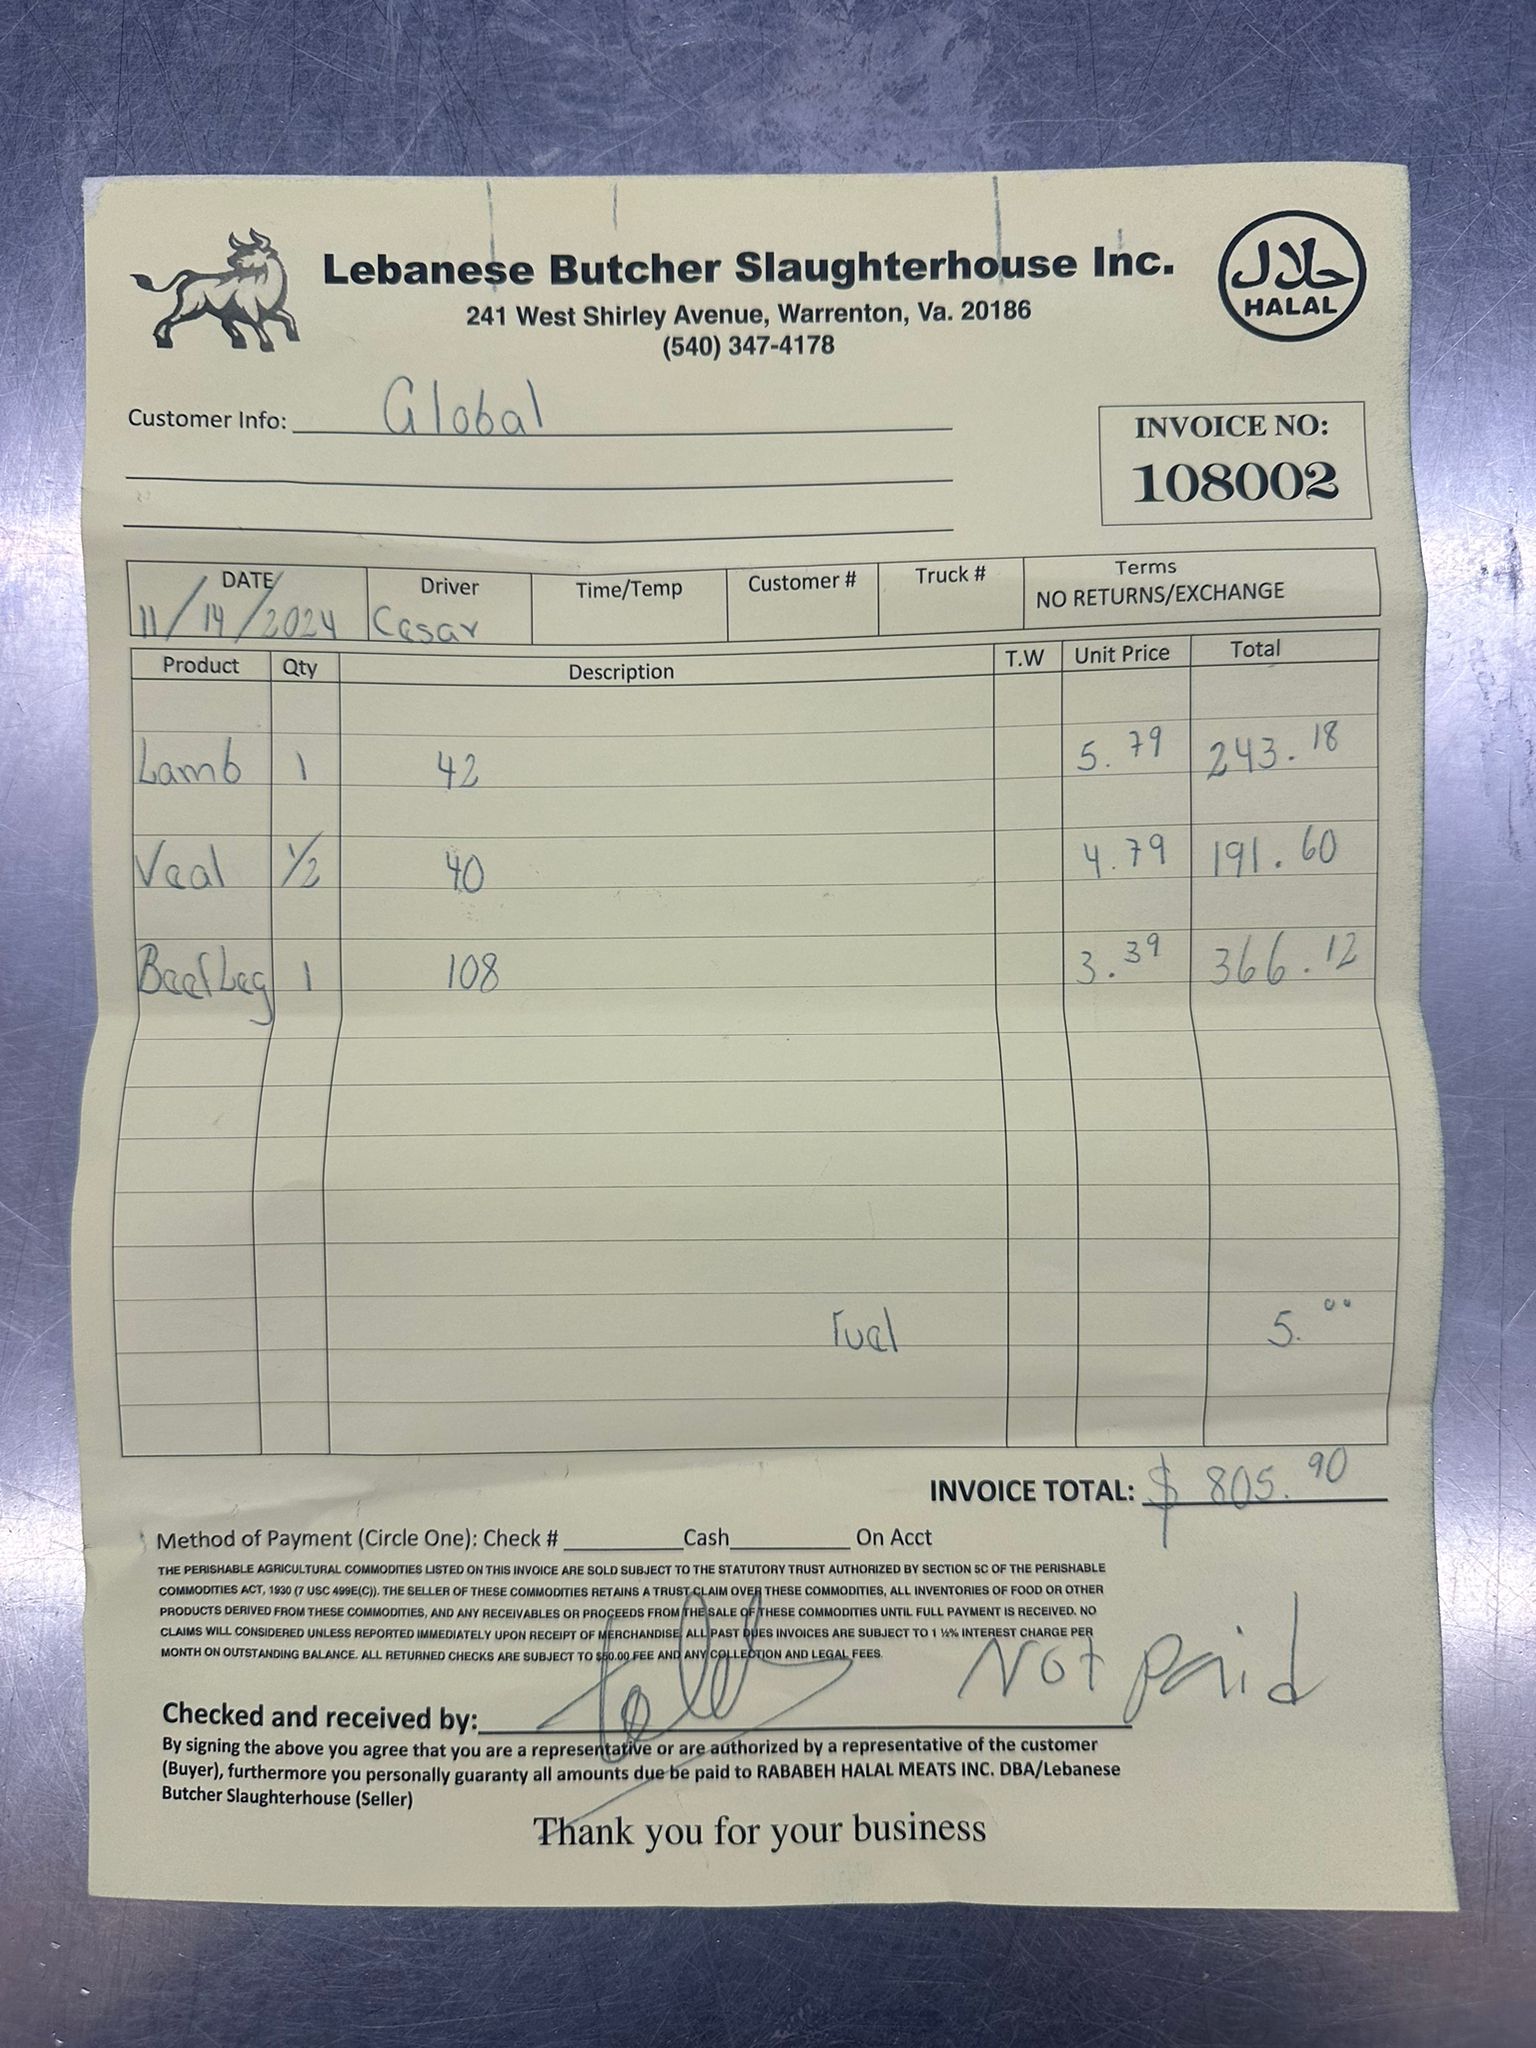 Lebanese Butcher Slaughterhouse Inc.
حلال
HALAL
241 West Shirley Avenue, Warrenton, Va. 20186
(540) 347-4178
Customer Info: Global
INVOICE NO:
108002
DATE Driver Time/Temp Customer # Truck # Terms
NO RETURNS/EXCHANGE
11/14/2024 Cesar
Product Qty Description T.W Unit Price Total
Lamb 1 42 5.79 243.18
Veal 1/2 40 4.79 191.60
Beef Leg 1 108 3.39 366.12
Fuel 5.00
INVOICE TOTAL: $ 805.90
Method of Payment (Circle One): Check # Cash On Acct
THE PERISHABLE AGRICULTURAL COMMODITIES LISTED ON THIS INVOICE ARE SOLD SUBJECT TO THE STATUTORY TRUST AUTHORIZED BY SECTION 5C OF THE PERISHABLE
COMMODITIES ACT, 1930 (7 USC 499E(C)). THE SELLER OF THESE COMMODITIES RETAINS A TRUST CLAIM OVER THESE COMMODITIES, ALL INVENTORIES OF FOOD OR OTHER
PRODUCTS DERIVED FROM THESE COMMODITIES, AND ANY RECEIVABLES OR PROCEEDS FROM THE SALE OF THESE COMMODITIES UNTIL FULL PAYMENT IS RECEIVED. NO
CLAIMS WILL CONSIDERED UNLESS REPORTED IMMEDIATELY UPON RECEIPT OF MERCHANDISE. ALL PAST DUES INVOICES ARE SUBJECT TO 1 ½% INTEREST CHARGE PER
MONTH ON OUTSTANDING BALANCE. ALL RETURNED CHECKS ARE SUBJECT TO $50.00 FEE AND ANY COLLECTION AND LEGAL FEES.
Not paid
Checked and received by:
By signing the above you agree that you are a representative or are authorized by a representative of the customer
(Buyer), furthermore you personally guaranty all amounts due be paid to RABABEH HALAL MEATS INC. DBA/Lebanese
Butcher Slaughterhouse (Seller)
Thank you for your business